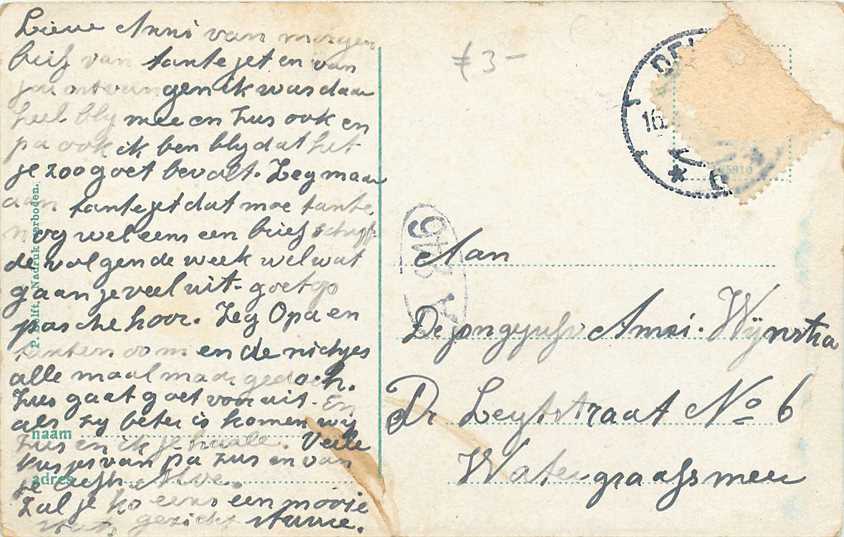 Lieve Anni van morgen
brief van tante jet en van
jou ontvangen ik was daar
heel bly mee en Zus ook en
pa ook ik ben bly dat het
je zoo goet bevalt. Zeg maar
aan tante jet dat moe tante
nog wel eens een brief schryft
de volgende week wel wat
gaan je veel uit - goet op
passche hoor. Zeg Opa en
oom en de nichjes
alle maal maar gedach.
Zus gaat goet vooruit. En
als zy beter is komen wy
Zus en ik je haale. Veele
kusjes van pa zus en van
je
Zal je ko eens een mooie
gezicht sturre.
naam
adres
Delft. Nadruk verboden.
f 3-
DEL
16
A 216
5910
Aan
De jongejufv Anni. Wynstra
Dr Leytstraat No 6
Watergraafsmeer